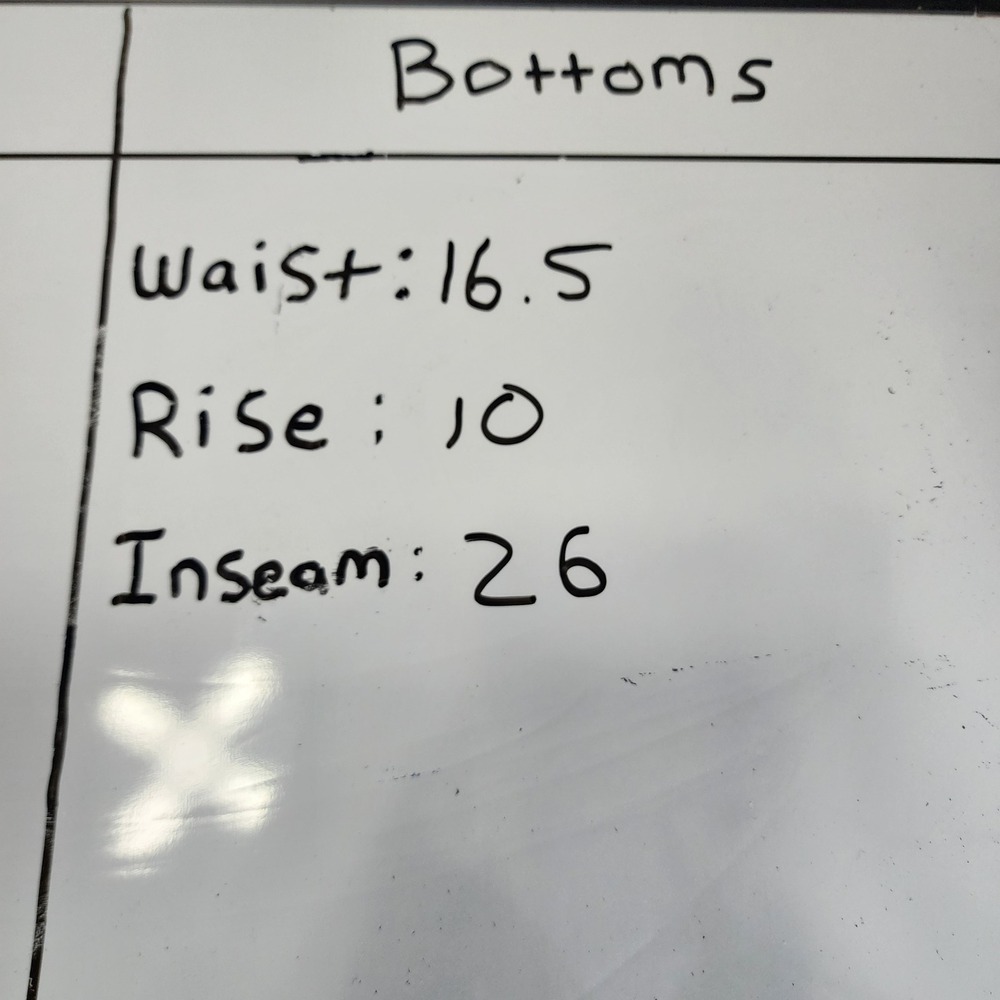 Bottoms
Waist: 16.5
Rise: 10
Inseam: 26